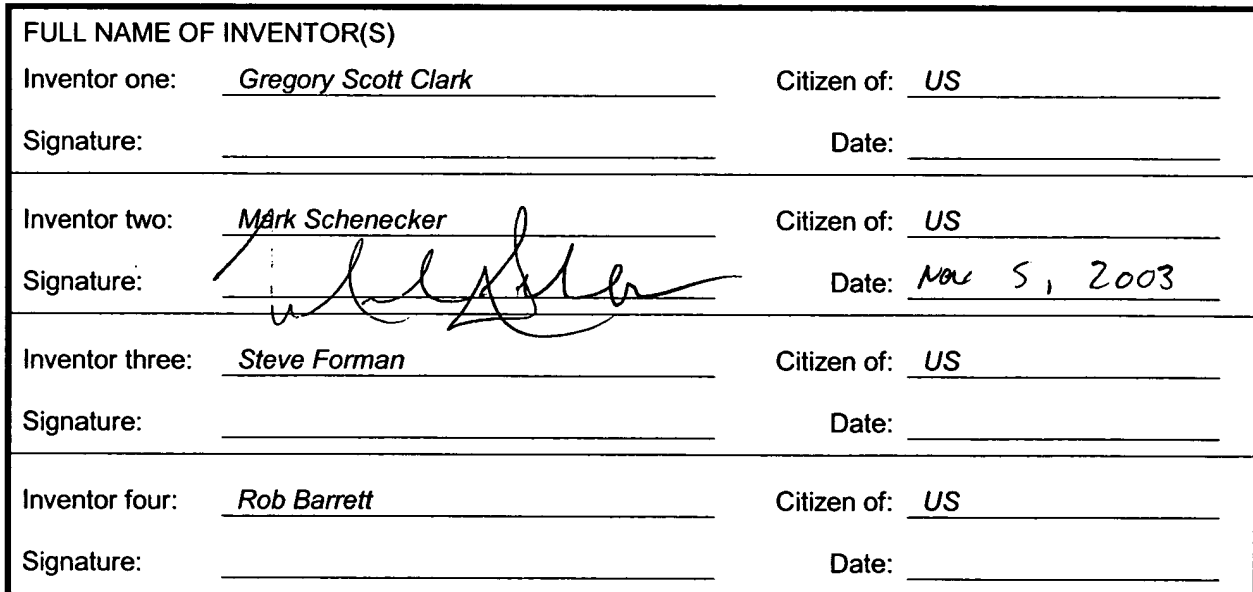 FULL NAME OF INVENTOR(S)
Inventor one: Gregory Scott Clark Citizen of: US
Signature: Date:
Inventor two: Mark Schenecker Citizen of: US
Signature: Date: Nov 5, 2003
Inventor three: Steve Forman Citizen of: US
Signature: Date:
Inventor four: Rob Barrett Citizen of: US
Signature: Date: